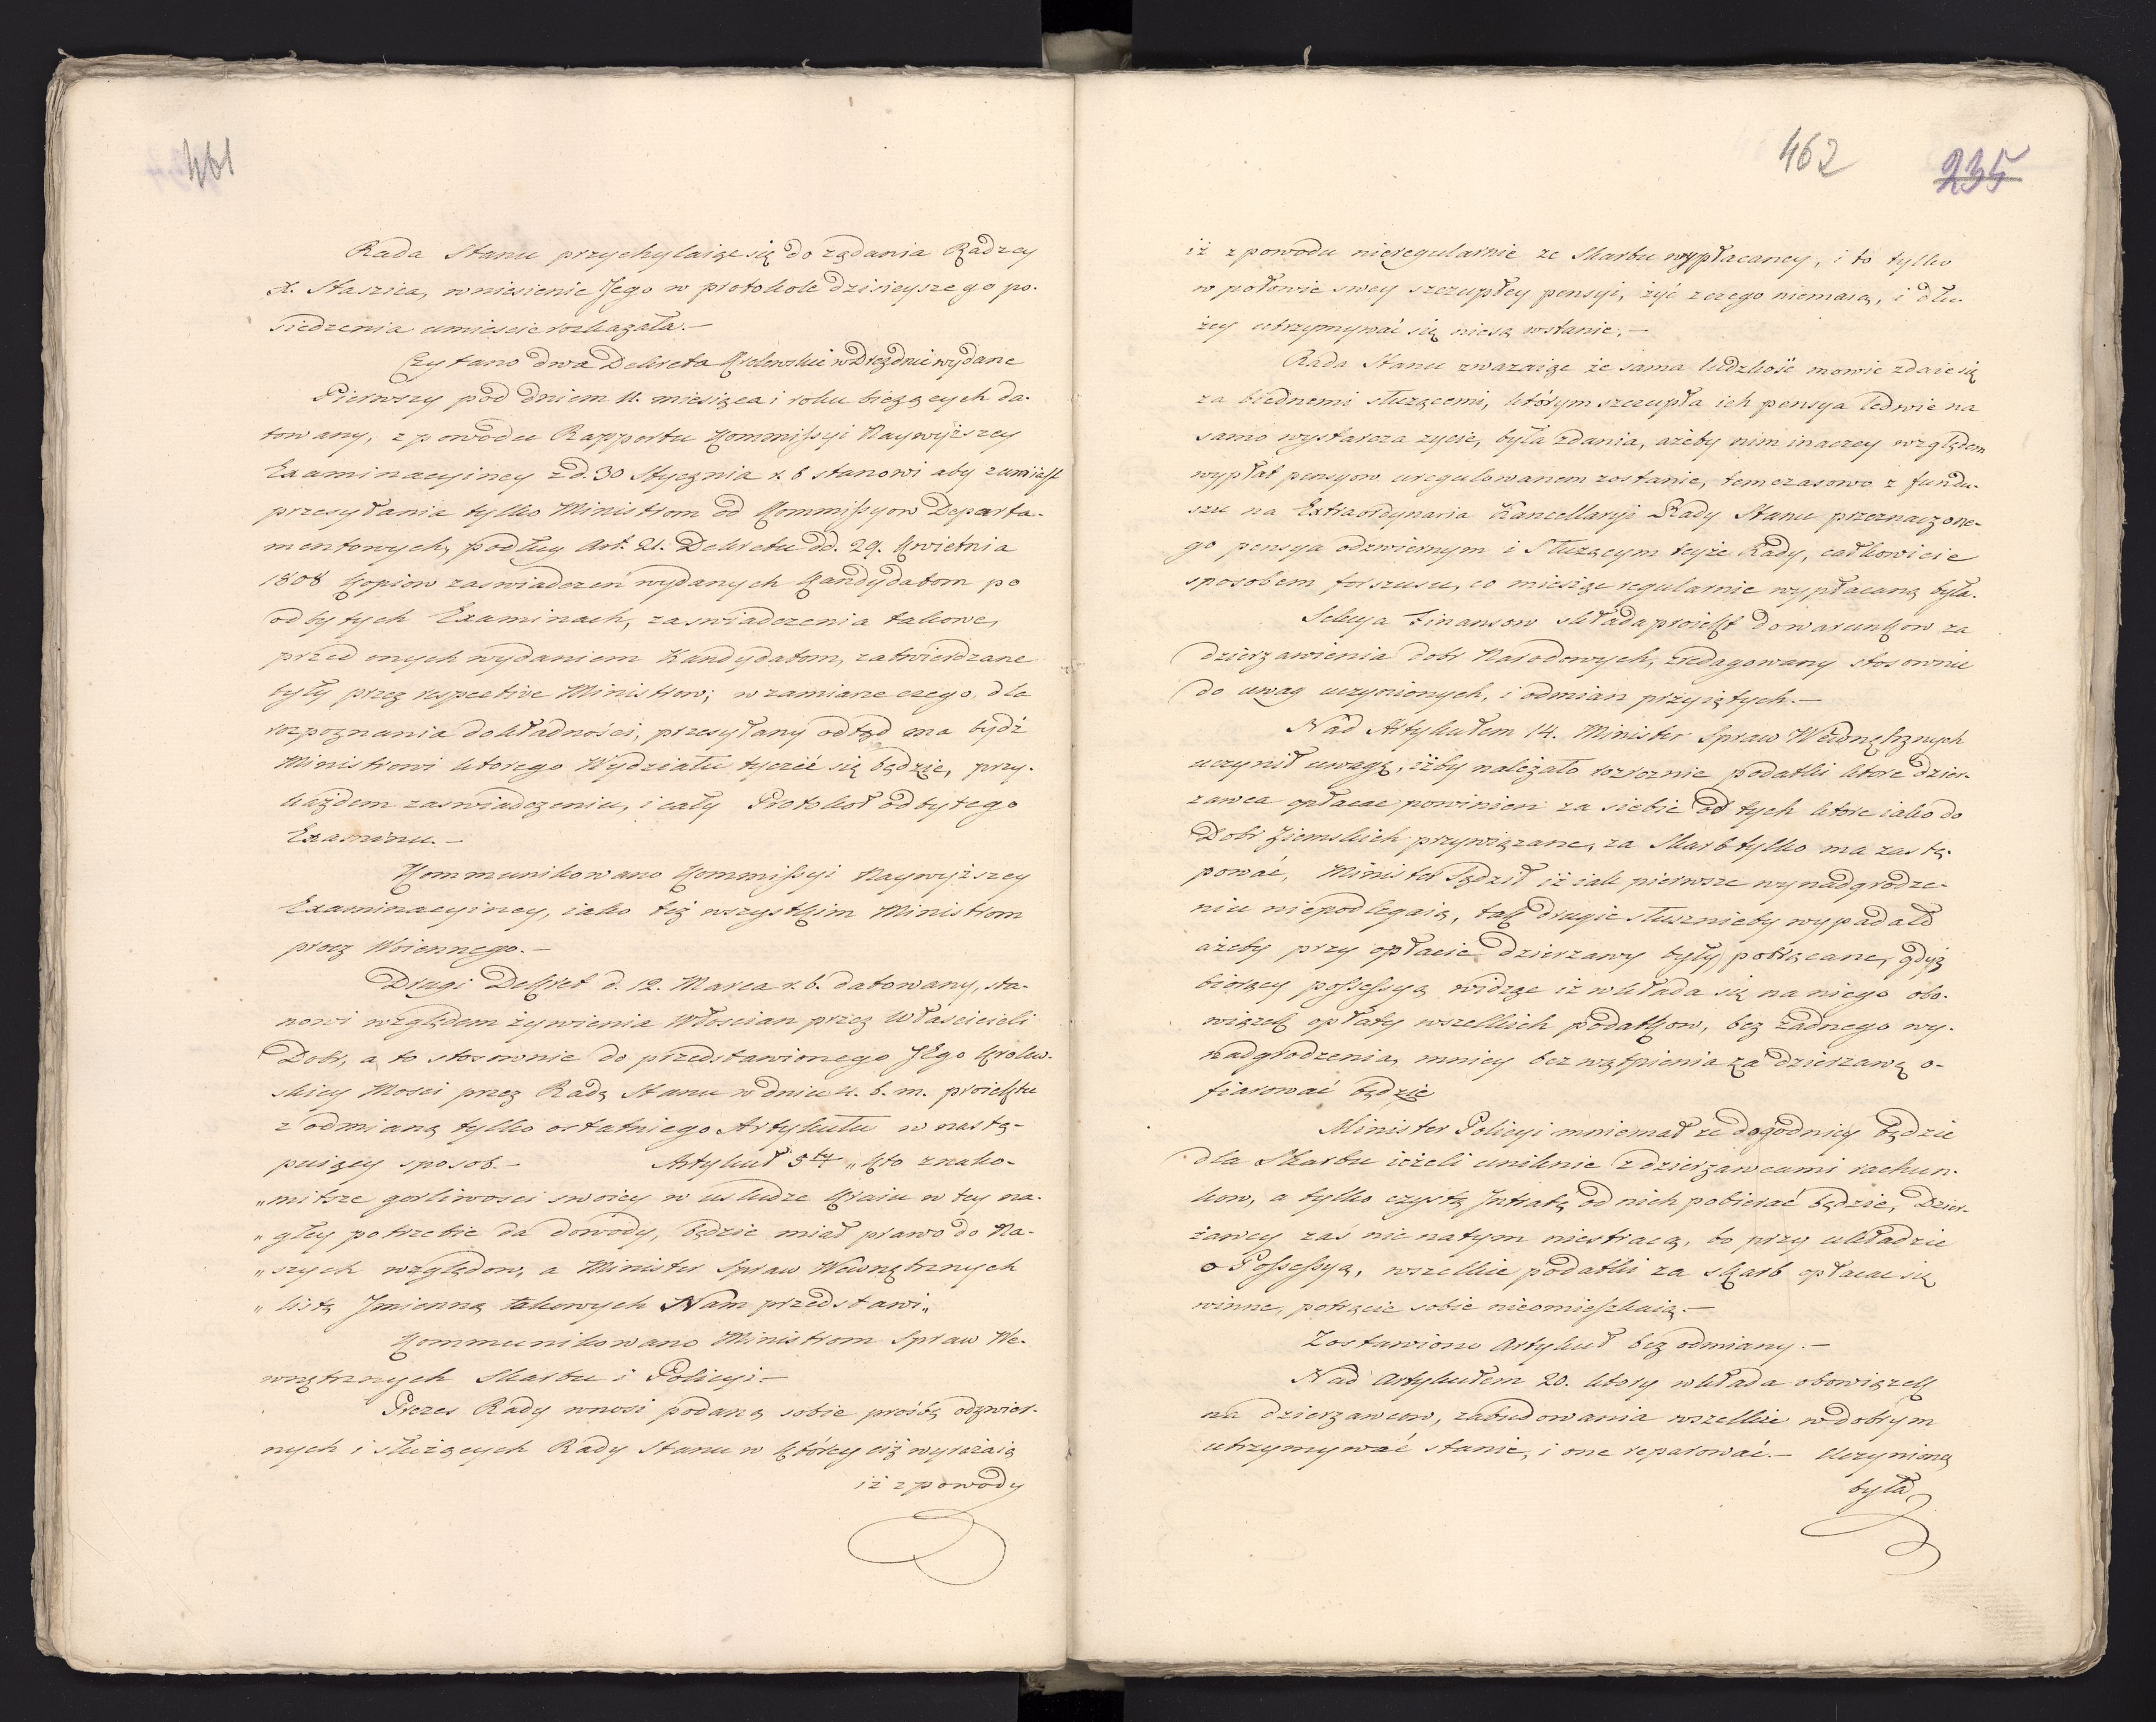 461
Rada Stanu przychylaiąc się do żądania Radzcy
X. Staszica, wniesienie Jego w protokole dzisieyszego po-
siedzenia umieścić rozkazała.—
Czytano dwa Dekreta Królewskie w Dreznie wydane
Pierwszy pod dniem 11. miesiąca i roku bieżących da-
towany, z powodu Rapportu Kommissyi Naywyższey
Examinacyiney z d. 30 Stycznia r. b stanowi aby zamiast
przesyłania tylko Ministrom od Kommissyow Departa-
mentowych, podług Art. 21. Dekretu dd. 29. Kwietnia
1808 Kopiow zaswiadczeń wydanych Kandydatom po
odbytych Examinach, zaswiadczenia takowe,
przed onych wydaniem Kandydatom, zatwierdzane
były przez respective Ministrow; w zamiarze czego, dla
rozpoznania dokładności, przesyłany odtąd ma bydź
Ministrowi ktorego Wydziału tyczéć się będzie, przy-
każdem zaswiadczeniu, i cały Protokoł odbytego
Examinu.—
Kommunikowano Kommissyi Naywyższey
Examinacyiney, iako też wszystkim Ministrom
procz Woiennego.—
Drugi Dekret d. 12. Marca r. b. datowany, sta-
nowi względem żywienia Włoscian przez Właścicieli
Dobr, a to stosownie do przedstawionego JEgo Krolew-
skiey Mosci przez Radę Stanu w dniu 4. b. m. proiektu
z odmianą tylko ostatniego Artykułu w nastę-
puiący sposob.— Artykuł 5ty „Kto znako-
„mitsze gorliwosci swoiey w usłudze Kraiu w tey na-
„głey potrzebie da dowody, będzie miał prawo do Na-
„szych względow, a Minister Spraw Wewnętrznych
„listę Jmienną takowych Nam przedstawi„
Kommunikowano Ministrom Spraw We-
wnętrznych Skarbu i Policyi.—
Prezes Rady wnosi podaną sobie prośbę odzwier-
nych i służących Rady Stanu w którey ciż wyrażaią
iż z powody
462
235
iż z powodu nieregularnie ze Skarbu wypłacaney, i to tylko
w połowie swey szczupłey pensyi, żyć z czego niemaią, i dłu-
żey utrzymywać się niesą wstanie.—
Rada Stanu zwazaiąc że sama ludzkość mowić zdaie się
za biednemi służącemi, którym szczupła ich pensya ledwie na
samo wystarcza zycie, była zdania, ażeby nim inaczey względem
wypłat pensyow uregulowanem zostanie, tem czasowo z fundu-
szu na Extraordynaria Kancellaryi Rady Stanu przeznaczone-
go pensya odzwiernym i służącym teyże Rady, całkowicie
sposobem forszusu, co miesiąc regularnie wypłacaną była.
Sekcya Finansow składa proiekt do warunkow za
dzierzawienia dobr Narodowych, zredagowany stosownie
do uwag uczynionych, i odmian przyiętych.—
Nad Artykułem 14. Minister Spraw Wewnętrznych
uczynił uwagę, iżby należało rozroznic podatki ktore dzier-
zawca opłacac powinien za siebie od tych ktore iako do
Dobr Ziemskich przywiązane, za Skarb tylko ma zastę-
pować, Minister Sądził iż iak pierwsze wynadgrodze-
niu niepodlegaią, tak drugie słusznieby wypadało
ażeby przy opłacie dzierzawy były potrącane, gdyż
biorący possessyą widząc iż wkłada się na niego obo-
wiązek opłaty wszelkich podatkow, bez żadnego wy-
nadgrodzenia, mniey bez wątpienia za dzierzawę o-
fiarować będzie
Minister Policyi mniemał ze dogodniey będzie
dla Skarbu ieżeli uniknie z dzierżawcami rachun-
kow, a tylko czystą Jntratę od nich pobierać będzie, Dzier-
żawcy zaś nic natym niestracą, bo przy układzie
o Possessyą, wszelkie podatki za skarb opłacac się
winne, potrącić sobie nieomieszkaią.—
Zostawiono Artykuł bez odmiany.—
Nad Artykułem 20. ktory wkłada obowiązek
na dzierzawcow, zabudowania wszelkie w dobrym
utrzymywać stanie, i one reparować.— Uczynioną
była